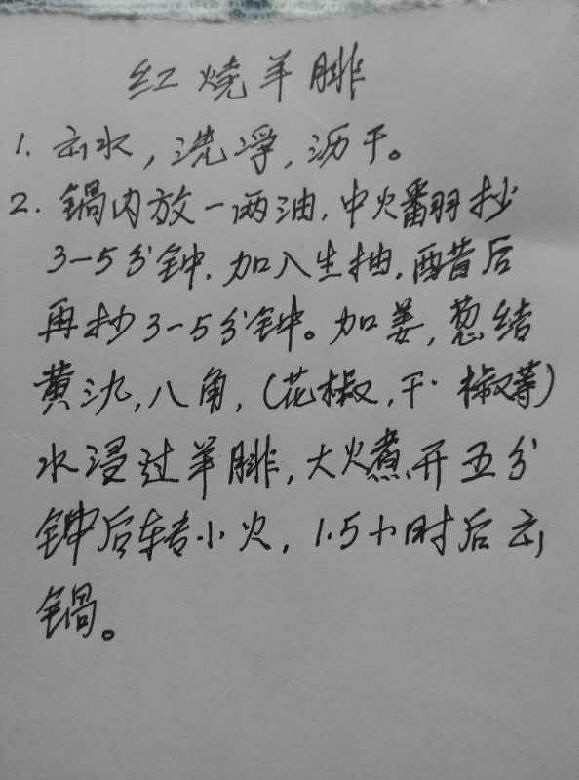 红烧羊腓
1. 出水，洗净，沥干。
2. 锅内放一两油，中火翻抄
3-5分钟，加入生抽，醋后
再抄3-5分钟。加姜，葱结
黄氿，八角，（花椒，干·椒等）
水浸过羊腓，大火煮开五分
钟后转小火，1.5小时后出
锅。